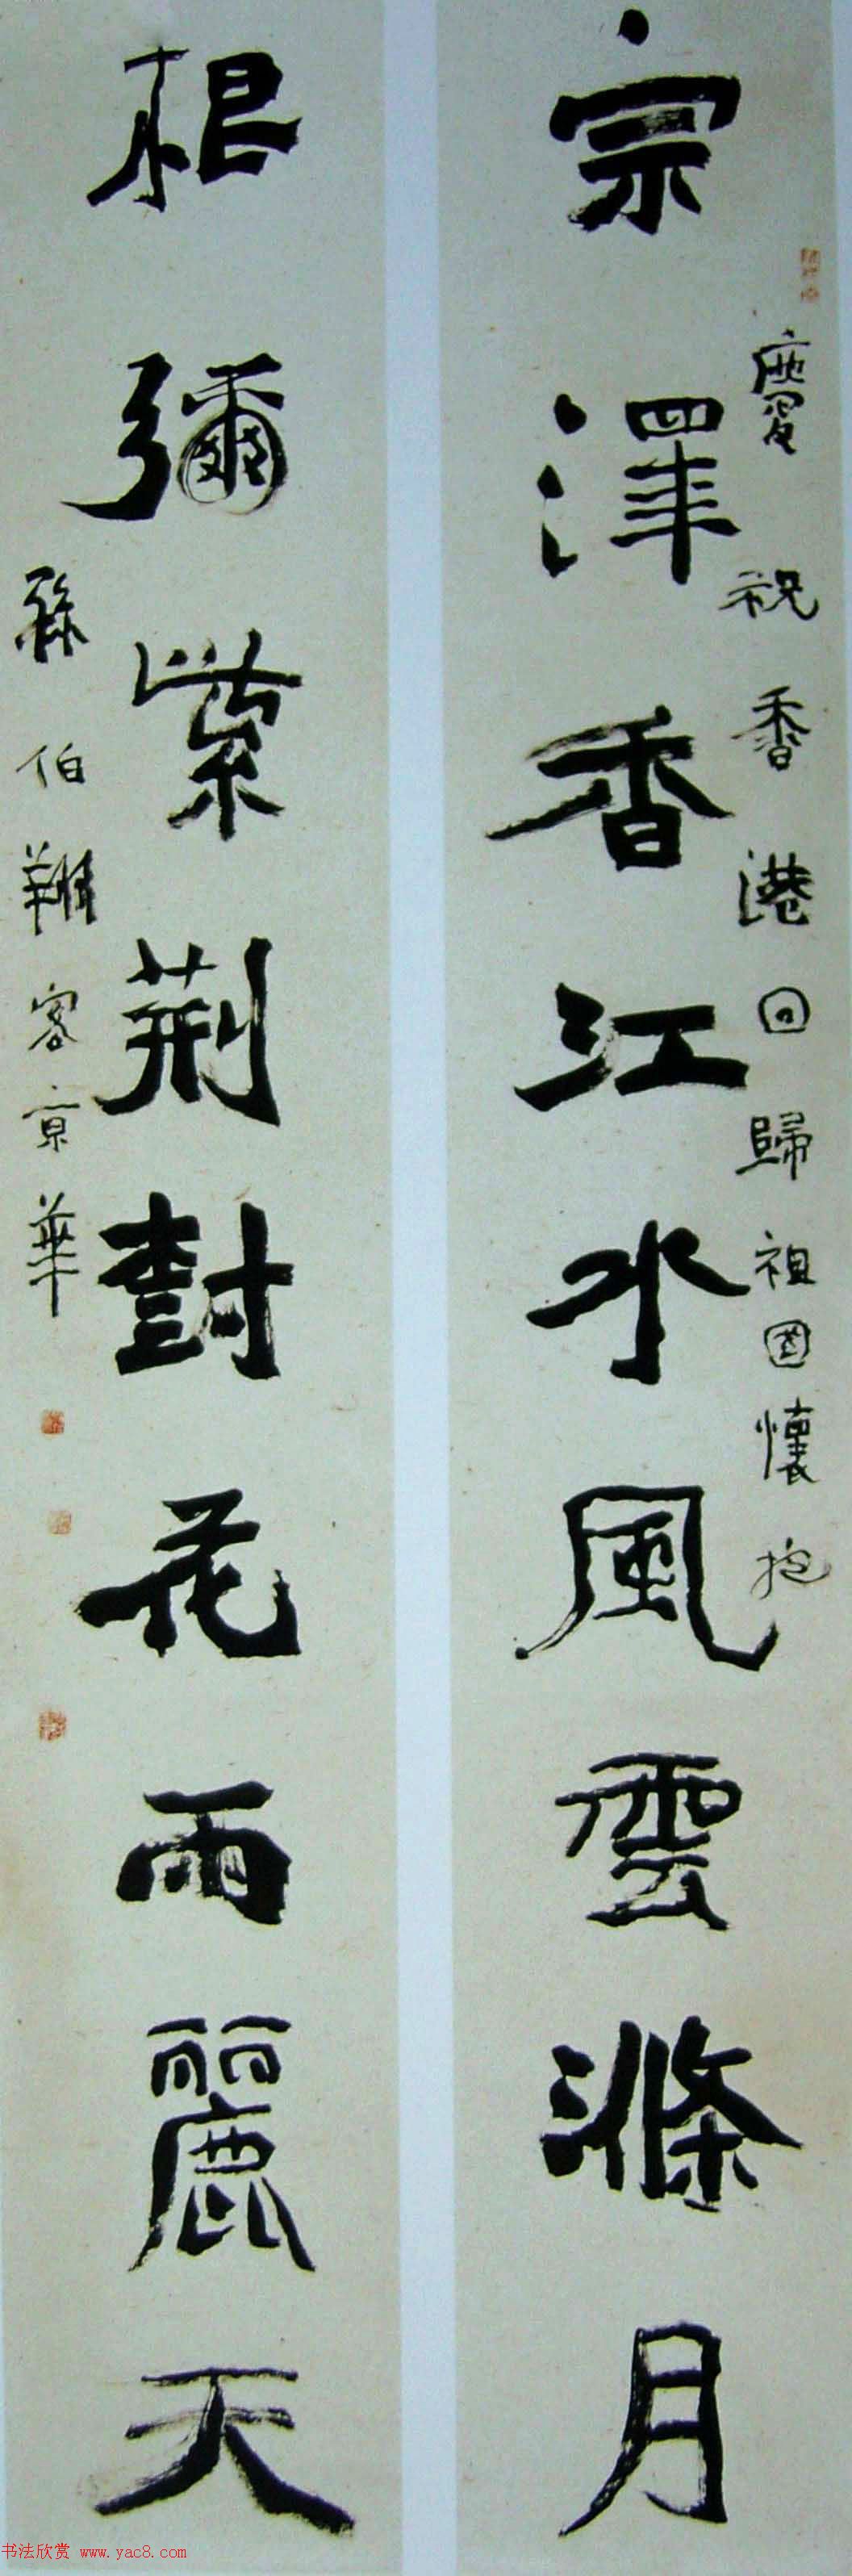 慶祝香港回歸祖國懷抱
宗澤香江水風雲滌月
根彌紫荆對花雨麗天
孫伯翔客京華
书法欣赏 www.yac8.com